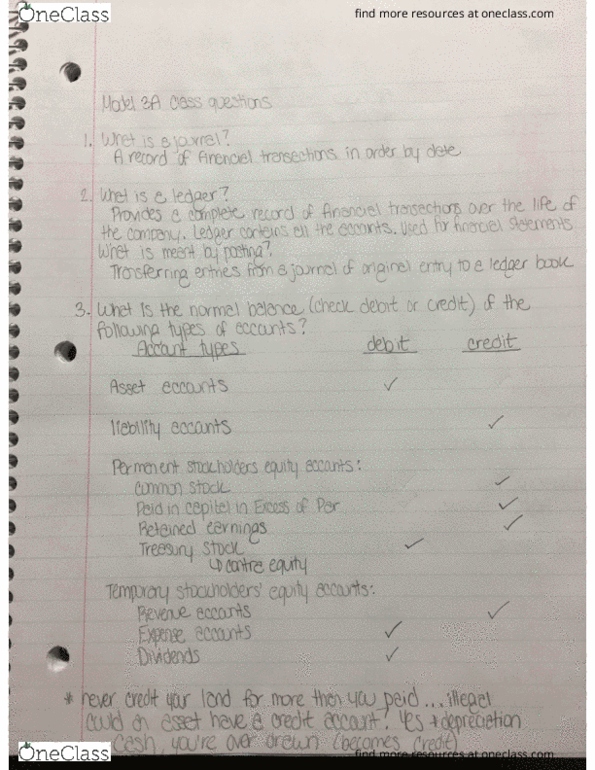 OneClass
find more resources at oneclass.com
Model 3A Class questions
1. What is a journal?
A record of financial transactions in order by date
2. What is a ledger?
Provides a complete record of financial transactions over the life of
the company. Ledger contains all the accounts. Used for financial statements
What is meant by posting?
Transferring entries from a journal of original entry to a ledger book
3. What is the normal balance (check debit or credit) of the
following types of accounts?
Account types debit credit
Asset accounts ✓
liability accounts ✓
Permanent stockholders equity accounts:
Common stock ✓
Paid in capital in Excess of Par ✓
Retained earnings ✓
Treasury stock ✓
↳ contra equity
Temporary stockholders' equity accounts:
Revenue accounts ✓
Expense accounts ✓
Dividends ✓
* never credit your land for more then you paid... illegal
could an asset have a credit account? Yes + depreciation
cash, you're over drawn (becomes credit)
OneClass
find more resources at oneclass.com